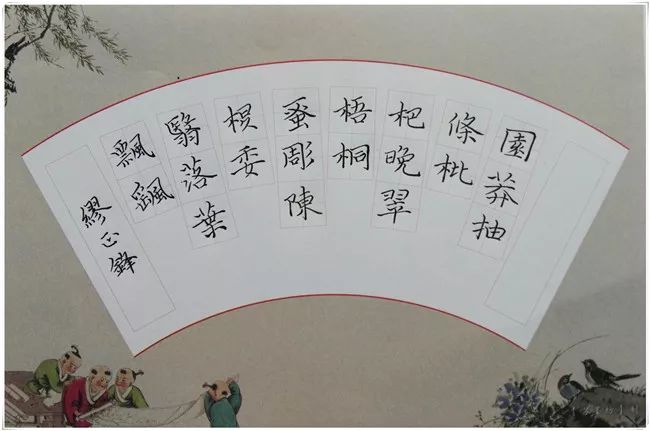 園莽抽
條枇
杷晚翠
梧桐
蚤彫陳
根委
翳落葉
飄颻
繆正鋒